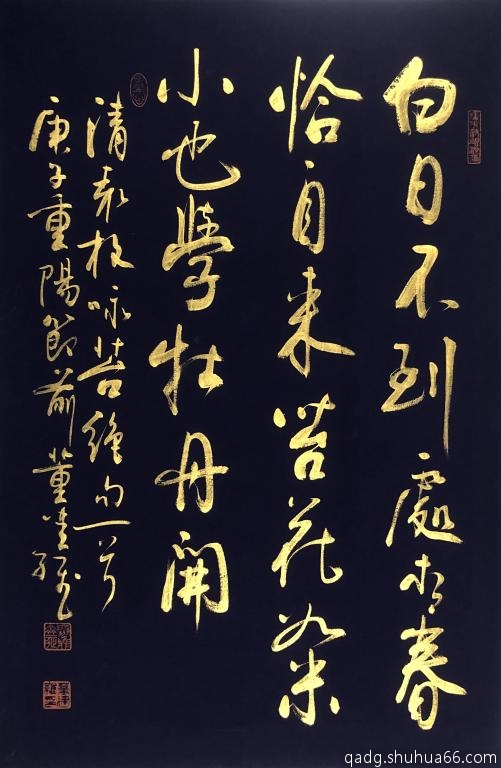 白日不到處青春
恰自来苔花如米
小也學牡丹開
清袁枚咏苔絶句一首
庚子重陽節前董
qadg.shuhua66.com